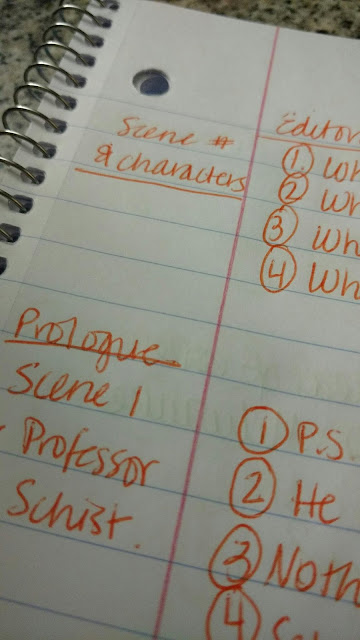 Scene #
& characters
Editor
① Wh
② Wh
③ Wh
④ Wh
Prologue
Scene 1
Professor
Schist.
① P.S.
② He
③ Noth
④